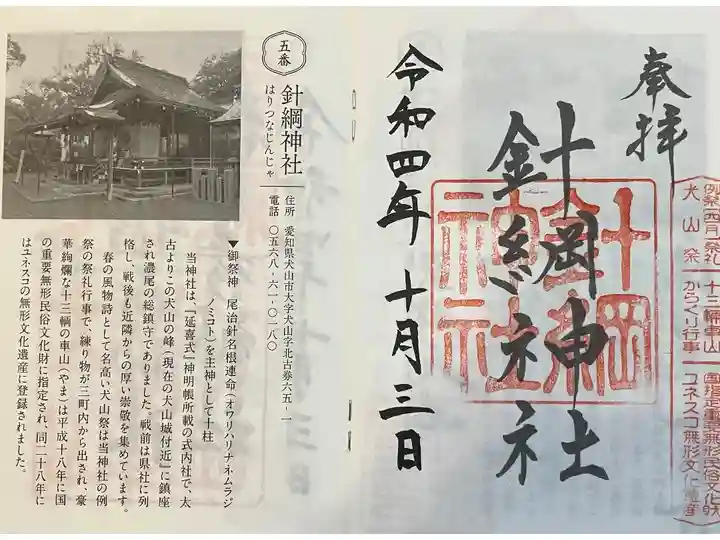 五番
針綱神社
はりつなじんじゃ
住所 愛知県犬山市大字犬山字北古券六五-一
電話 〇五六八-六一-〇一八〇
▼御祭神 尾治針名根連命(オワリハリナネムラジ
ノミコト)を主神として十柱
当神社は、『延喜式』神明帳所載の式内社で、太
古よりこの犬山の峰(現在の犬山城付近)に鎮座
され濃尾の総鎮守でありました。戦前は県社に列
格し、戦後も近隣からの厚い崇敬を集めています。
春の風物詩として名高い犬山祭は当神社の例
祭の祭礼行事で、練り物が三町内から出され、豪
華絢爛な十三輌の車山(やま)は平成十八年に国
の重要無形民俗文化財に指定され、同二十八年に
はユネスコの無形文化遺産に登録されました。
奉拝
針綱神社
令和四年十月三日
例祭(四月)祭礼
犬山祭
十三輌車山
からくり行事
国指定重要無形民俗文化財
ユネスコ無形文化遺産